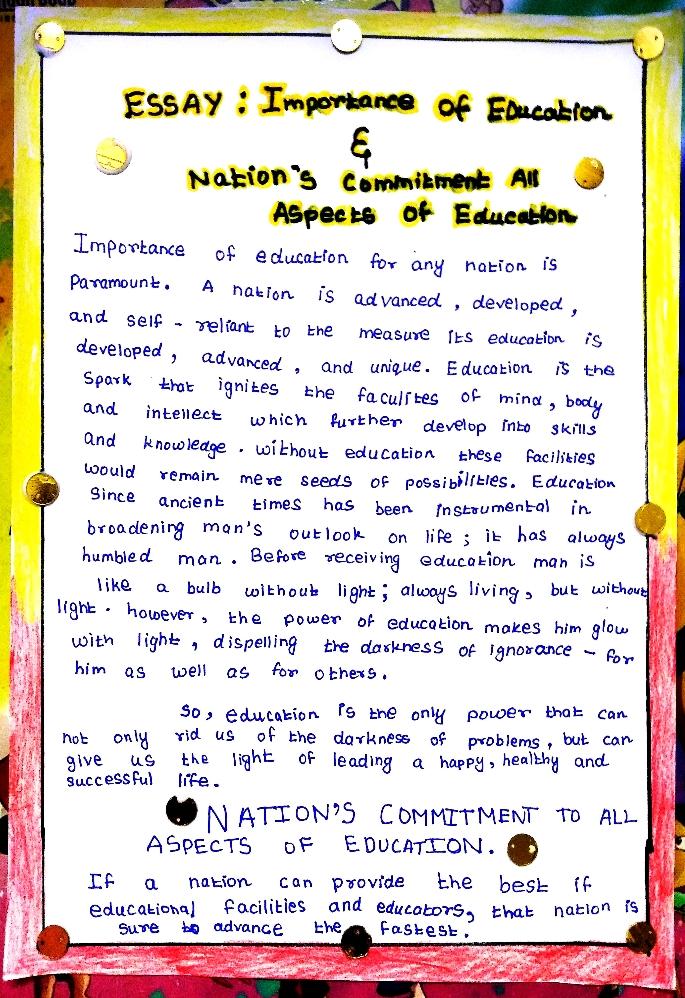 ESSAY : Importance of Education
&
Nation's Commitment All
Aspects of Education
Importance of education for any nation is
Paramount. A nation is advanced, developed,
and self-reliant to the measure its education is
developed, advanced, and unique. Education is the
Spark that ignites the faculites of mind, body
and intellect which further develop into skills
and knowledge. without education these facilities
would remain mere seeds of possibilities. Education
Since ancient times has been instrumental in
broadening man's outlook on life; it has always
humbled man. Before receiving education man is
like a bulb without light; always living, but without
light. however, the power of education makes him glow
with light, dispelling the darkness of ignorance - for
him as well as for others.
So, education is the only power that can
not only rid us of the darkness of problems, but can
give us the light of leading a happy, healthy and
successful life.
NATION'S COMMITMENT TO ALL
ASPECTS OF EDUCATION.
If a nation can provide the best if
educational facilities and educators, that nation is
sure to advance the fastest.